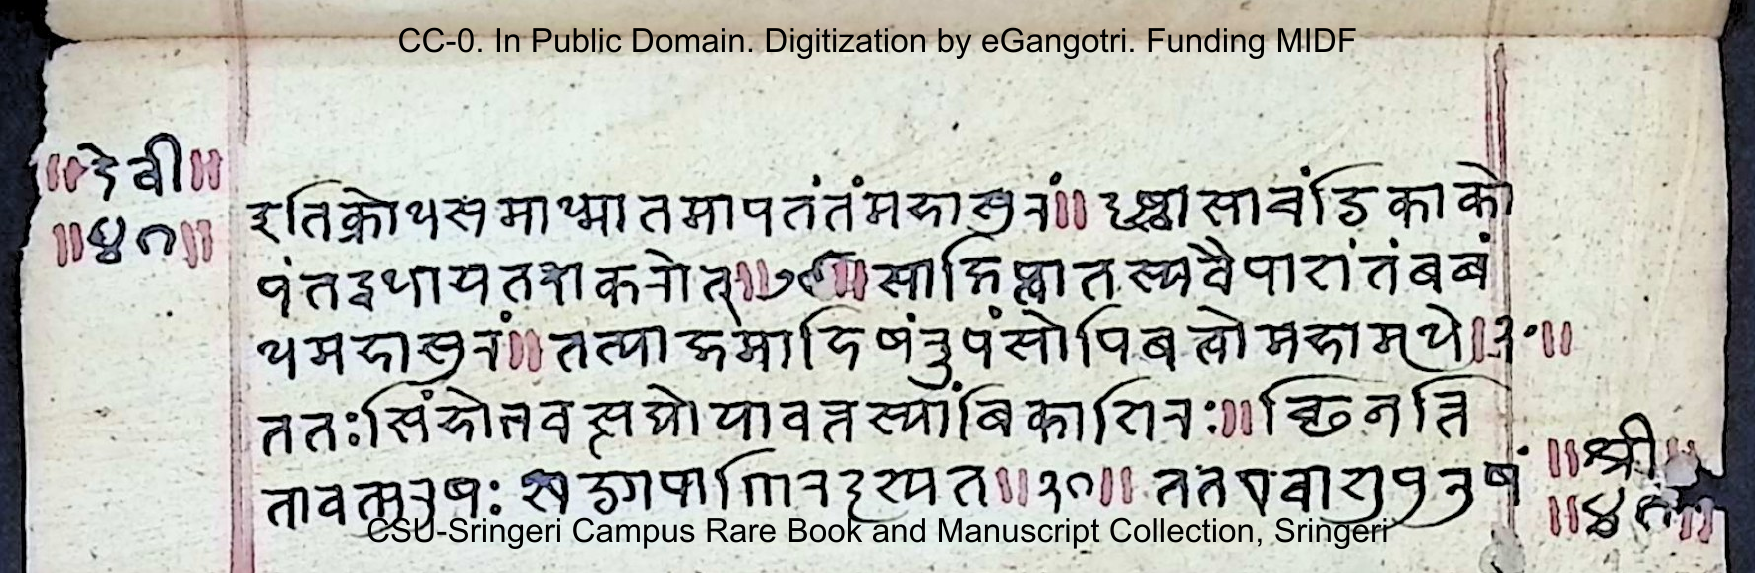 CC-0. In Public Domain. Digitization by eGangotri. Funding MIDF
॥देवी॥
॥४१॥
इतिक्रोधसमाध्मातमापतंतंमहासुरं॥ दृष्ट्वासाचंडिकाको
पंतद्वधायतदाकरोत्॥२९॥साक्षिप्त्वातस्यवैपाशंतंबबं
धमहासुरं॥तत्याजमाहिषंरुपंसोपिबद्धोमहामृधे॥३०॥
ततःसिंहोभवत्सद्योयावत्तस्यांबिकाशिरः॥छिनत्ति
तावत्पुरुषः खड्गपाणिरदृश्यत॥३१॥ ततएवाशुपुरुषं
॥श्री॥
॥४१॥
CSU-Sringeri Campus Rare Book and Manuscript Collection, Sringeri